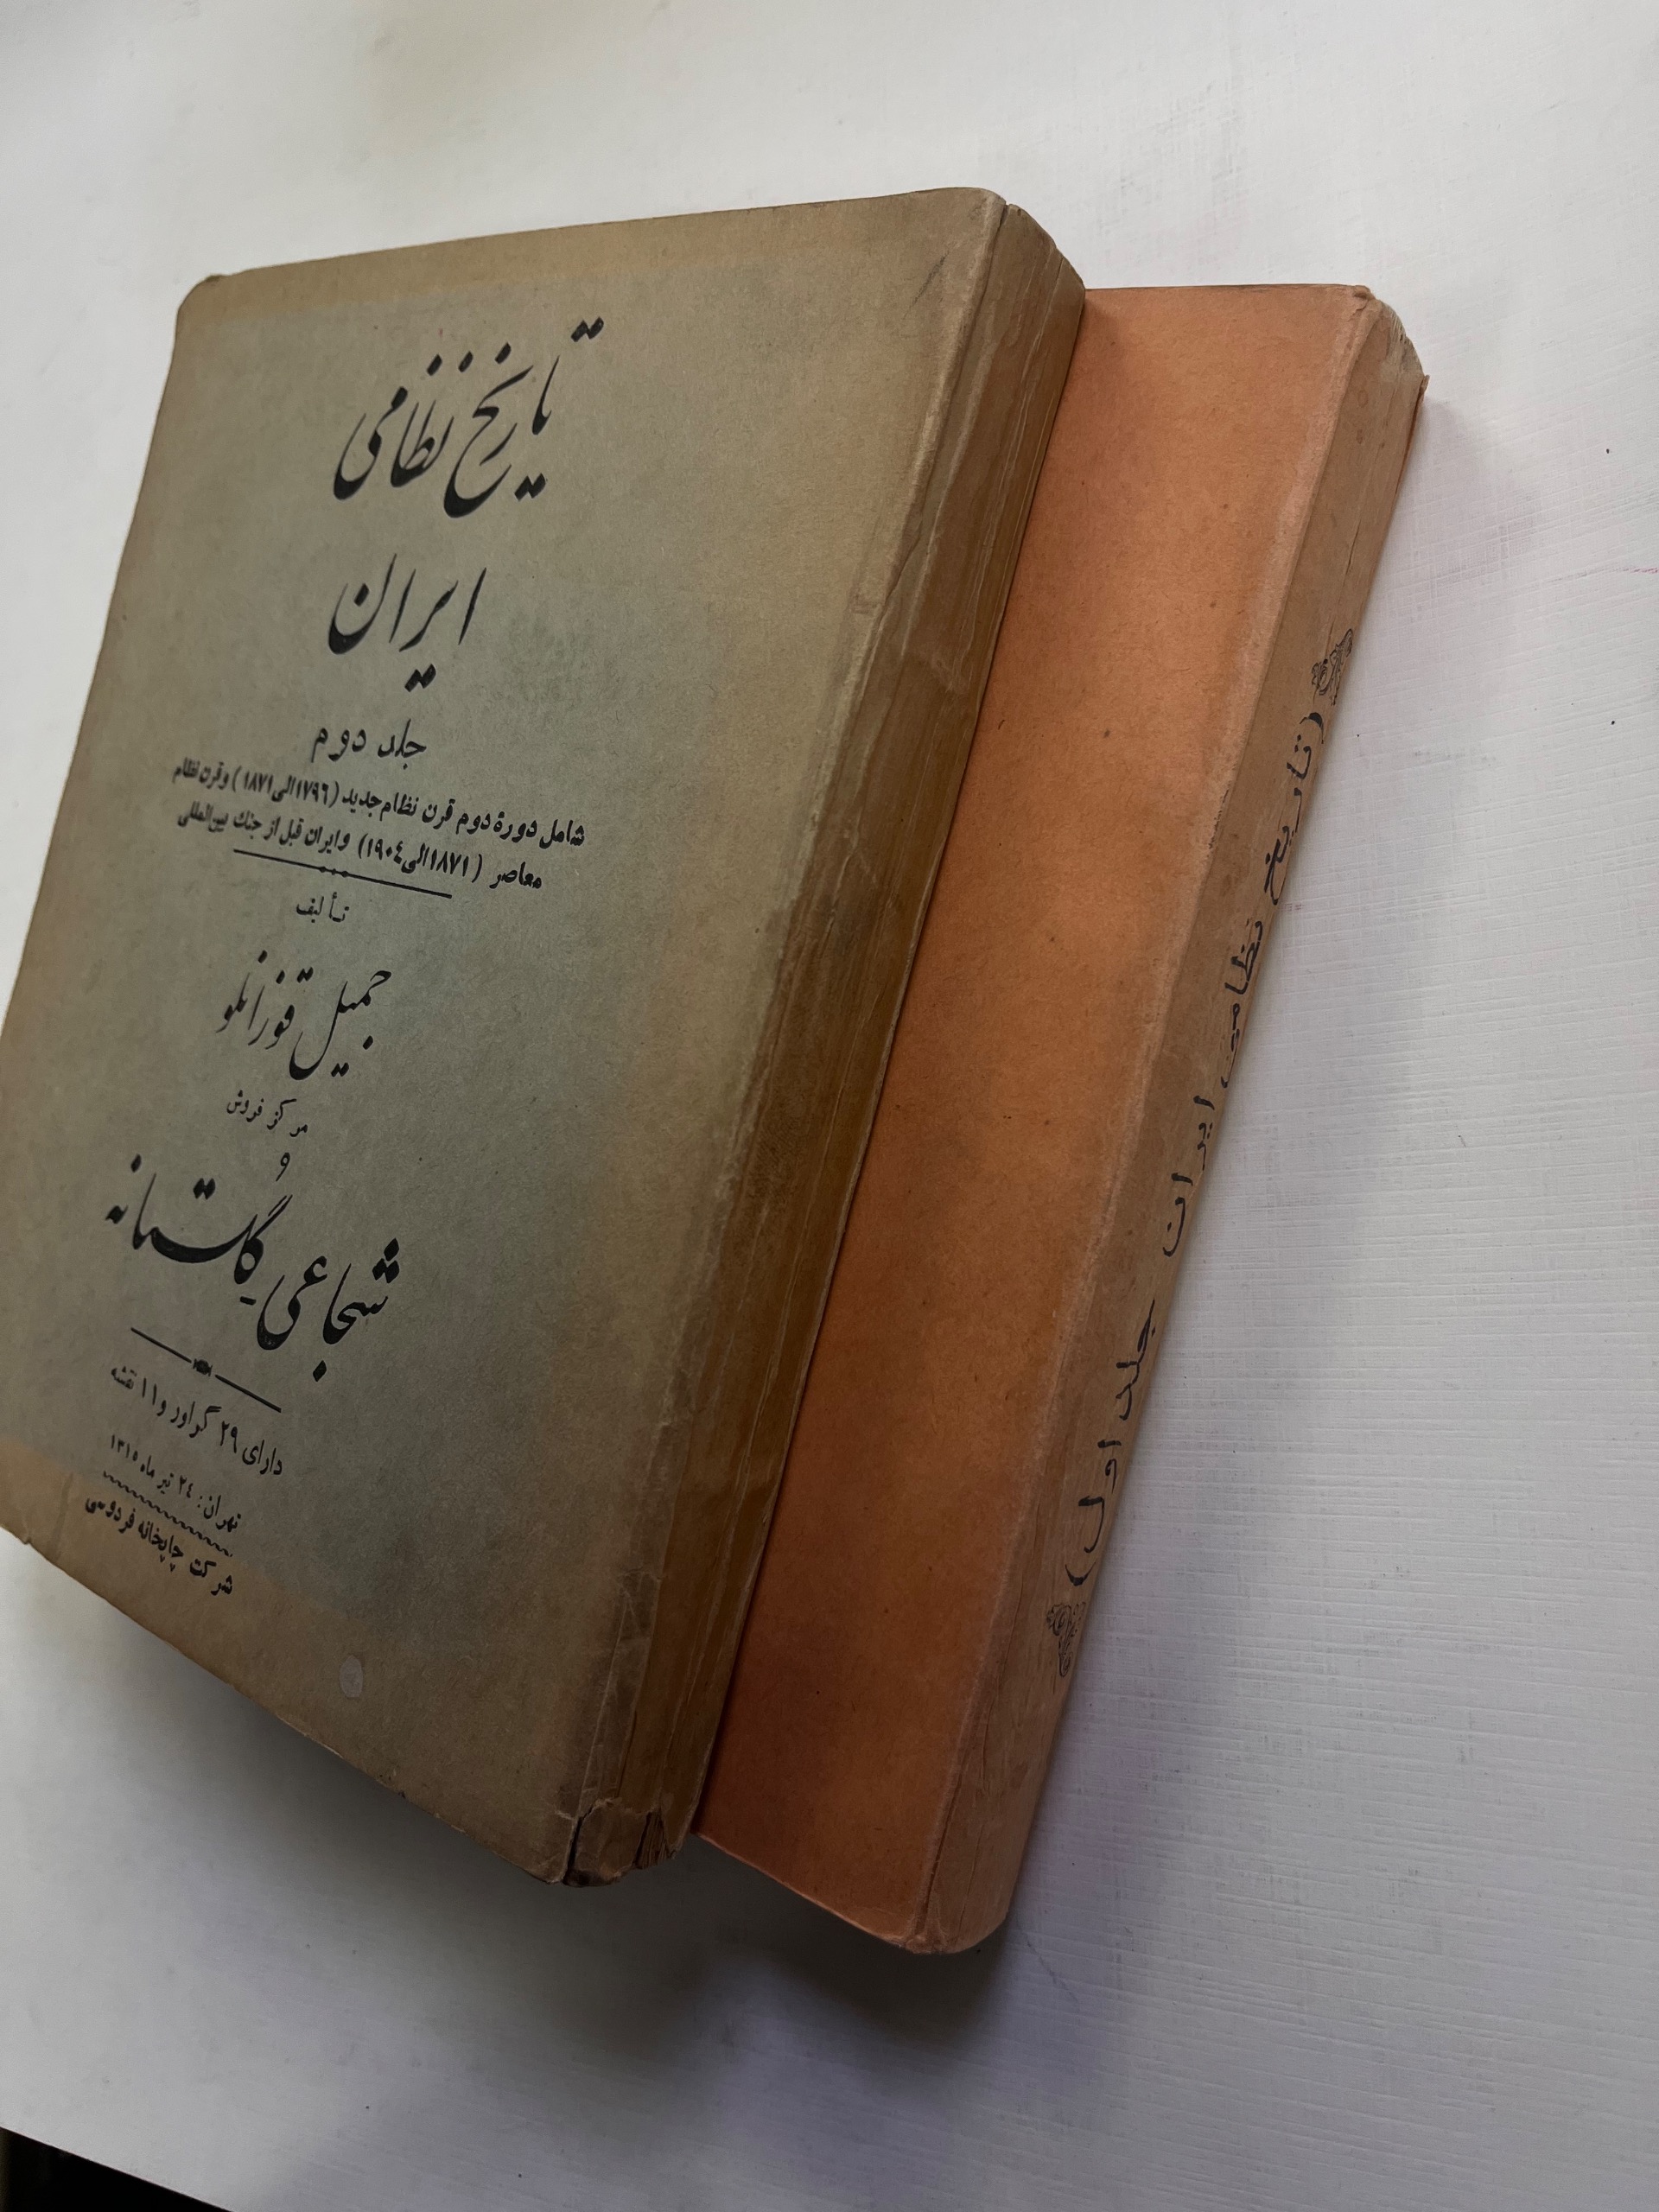 تاریخ نظامی
ایران
جلد دوم
شامل دورهٔ دوم قرن نظام جدید (۱۷۹۶ الی ۱۸۷۱) و قرن نظام
معاصر (۱۸۷۱ الی ۱۹۰٤) و ایران قبل از جنك بین‌المللی
تألیف
جمیل قوزانلو
مرکز فروش
شجاعی و گلستانه
دارای ۲۹ گراور و ۱۱ نقشه
تهران: ۲٤ تیر ماه ۱۳۱۵
شرکت چاپخانه فردوسی
(تاریخ نظامی ایران جلد اول)